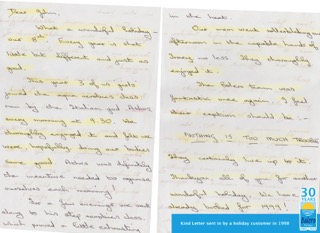 Dear John,
What a wonderful holiday -
our 9th. Every year is that
little bit different and just as
good.
This year 3 of us girls
joined the aqua aerobics class
run by the Indian god Ashos
every morning at 9.30. We
thoroughly enjoyed it and felt we
were, hopefully, doing our bodies
some good. Ashos was definitely
the incentive needed to organise
ourselves each morning!
So a few evenings we went
along to his step aerobics class,
which proved a little exhausting
in the heat.
Our men went waterskiing one
afternoon in the capable hands of
Jimmy no less. They thoroughly
enjoyed it.
The Salem team was
fantastic once again. I feel
their caption should be :-
NOTHING IS TOO MUCH TROUBLE
They certainly live up to it.
Thank you all of you for another
wonderful holiday. We have
already booked for 1999!
30
YEARS
Kind Letter sent in by a holiday customer in 1998